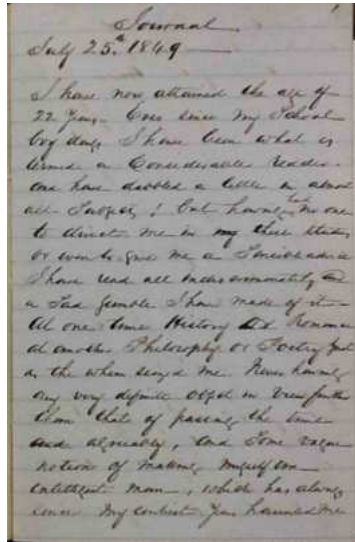 Journal
July 25th 1849
I have now attained the age of
22 Years. Ever since my School
boy days I have been what is
termed a Considerable Reader
and have dabbled a little in almost
all Subjects; but having had no one
to direct me in my these
or even to give me a advice
I have read all indiscriminately and
a Sad jumble I have made of it —
At one time History and Romance
at another Philosophy or Poetry just
as the whim seized me. Never having
any very definite object in View further
than that of passing the time
and agreeably, and Some vague
notion of making myself an
intelligent man, which has always
since my earliest Years haunted me